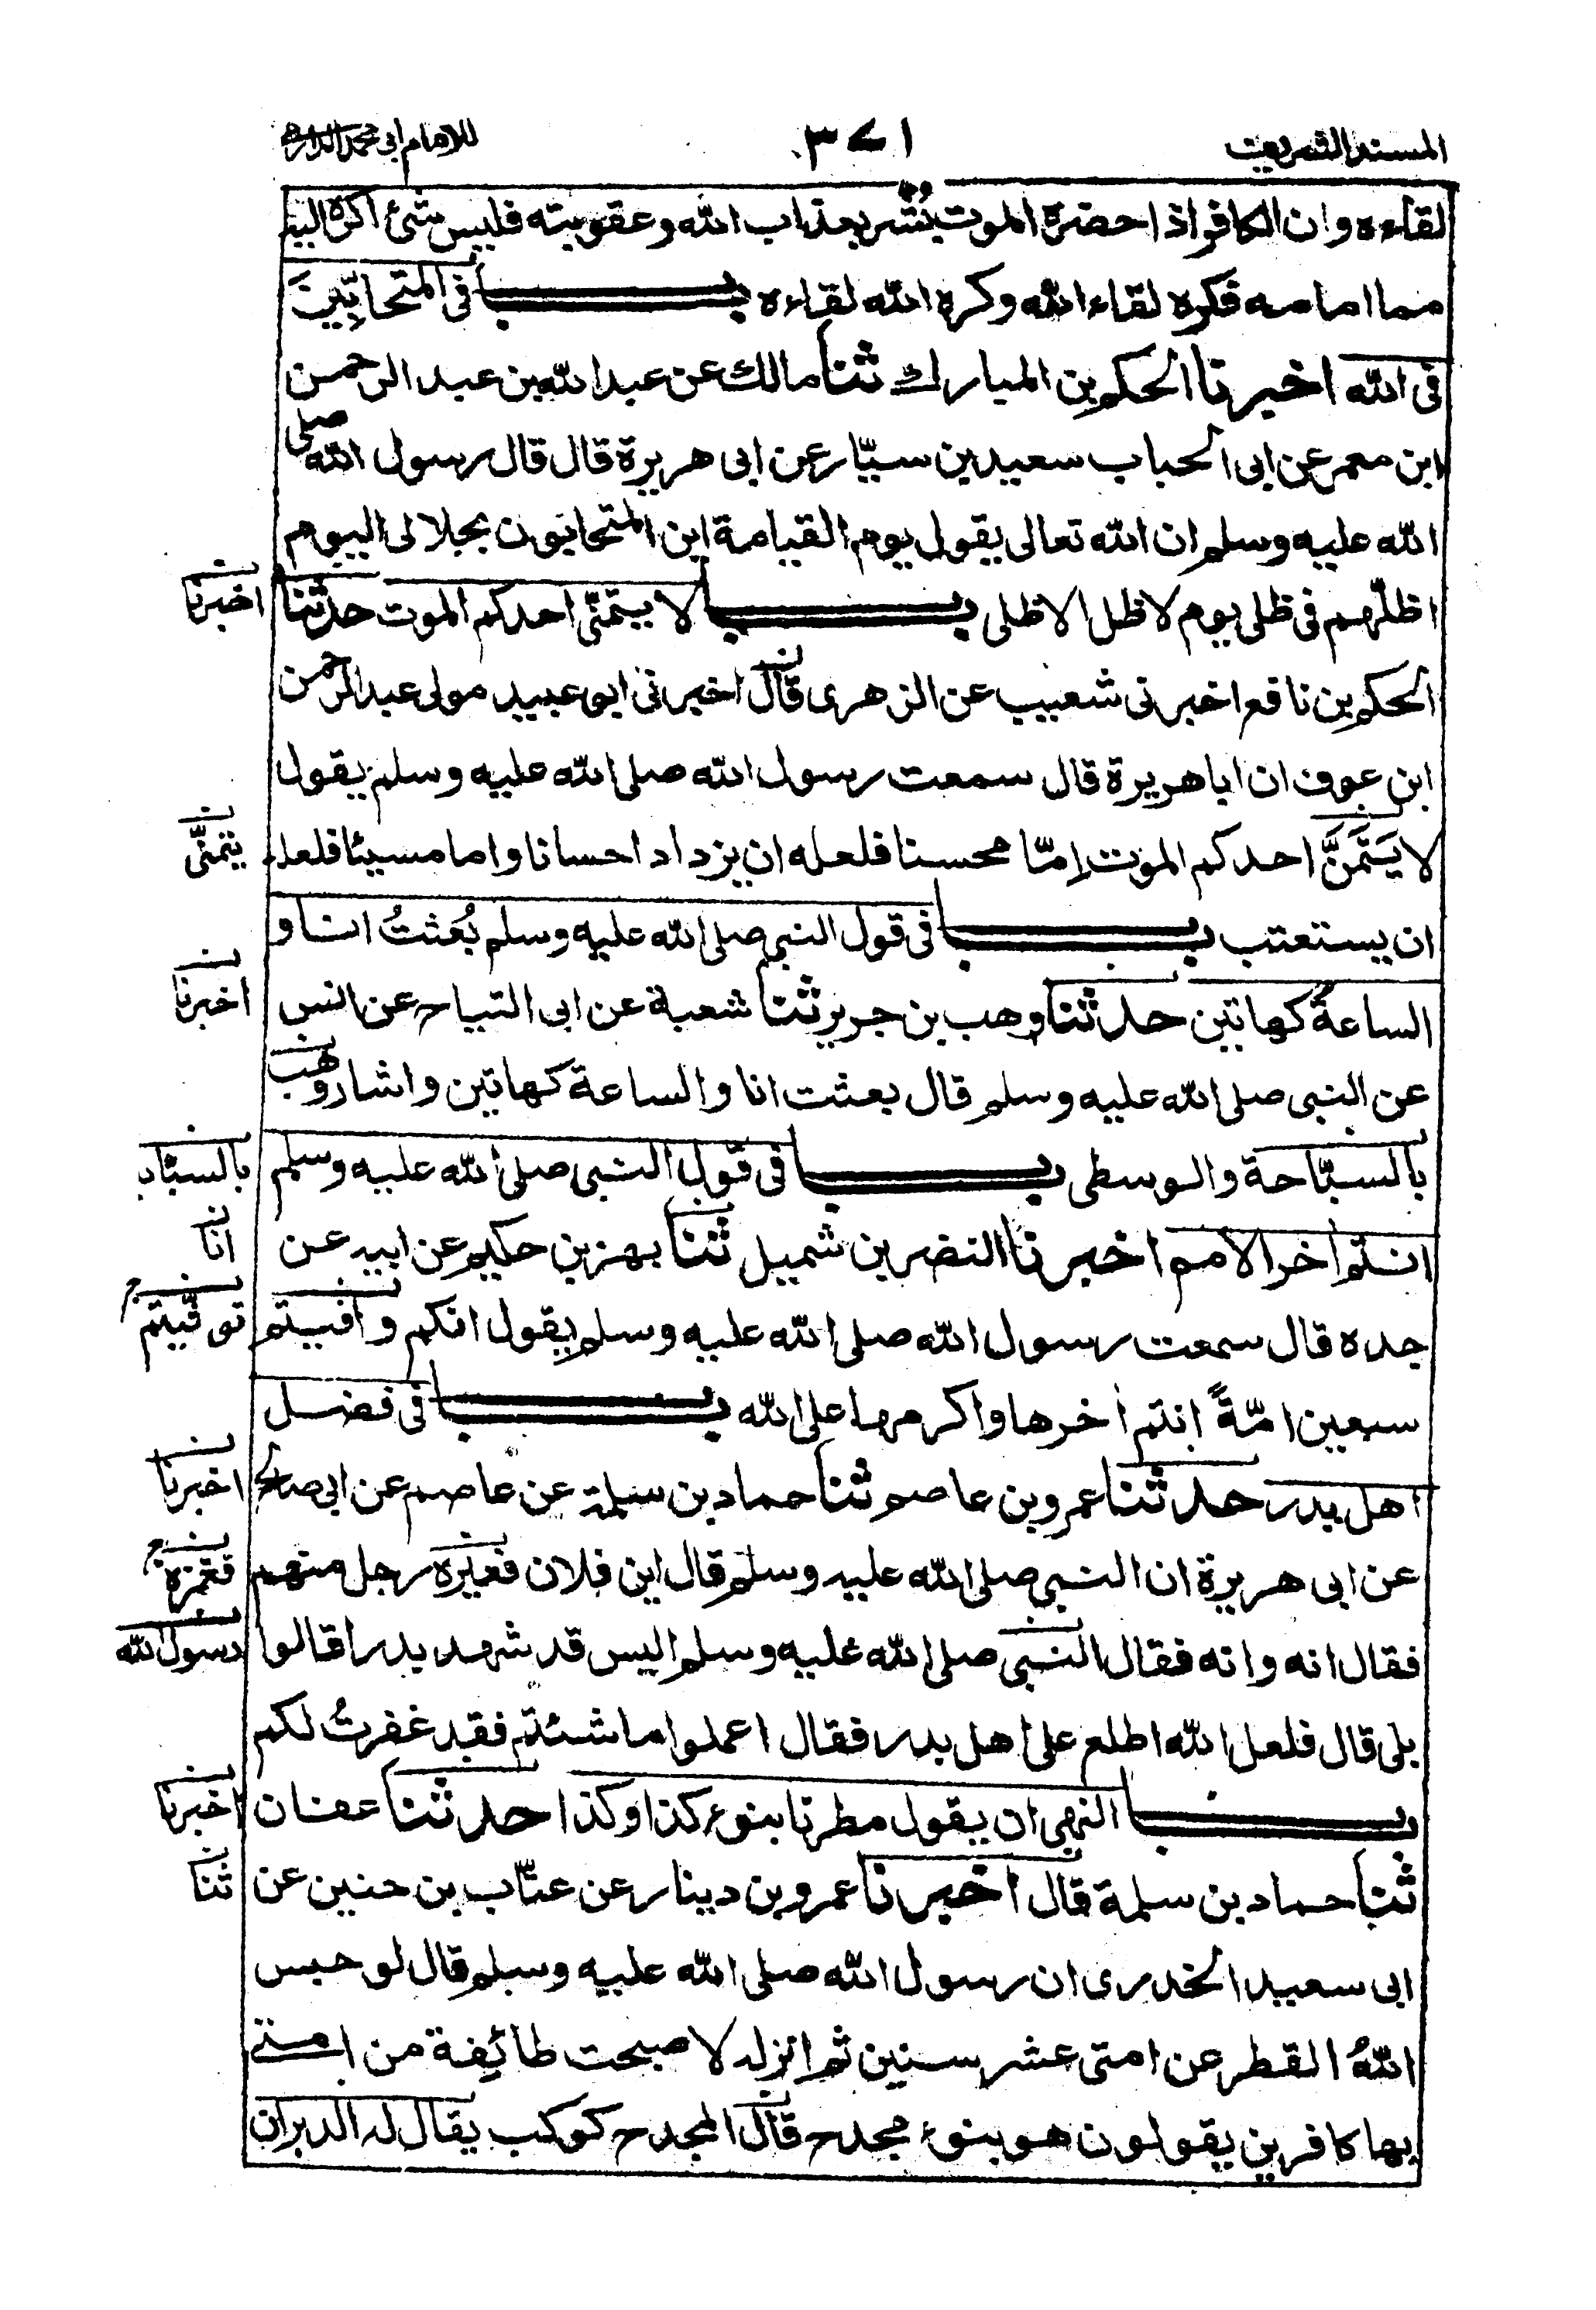 المسند الشريف ٣٧١ للامام ابى محمد الدارمى
لقاءه وان الكافر اذا حضرة الموت بُشّر بعذاب الله وعقوبته فليس شئ اكره اليه
مما امامه فكره لقاء الله وكره الله لقاءه باب فى المتحابّين
فى الله اخبرنا الحكم بن المبارك ثنا مالك عن عبد الله بن عبد الرحمن
ابن معمر عن ابى الحباب سعيد بن سيّار عن ابى هريرة قال قال رسول الله صلى
الله عليه وسلم ان الله تعالى يقول يوم القيامة اين المتحابون بجلالى اليوم
اظلّهم فى ظلى يوم لا ظل الا ظلى باب لا يتمنّى احدكم الموت حدثنا
اخبرنا
الحكم بن نافع اخبرنى شعيب عن الزهرى قال اخبرنى ابو عبيد مولى عبد الرحمن
ابن عوف ان ابا هريرة قال سمعت رسول الله صلى الله عليه وسلم يقول
لا يَتَمَنَّ احدكم الموت اِمّا محسنا فلعله ان يزداد احسانا واما مسيئا فلعله
يتمنّى
ان يستعتب باب فى قول النبى صلى الله عليه وسلم بُعثتُ انا و
الساعةُ كهاتين حدثنا وهب بن جرير ثنا شعبة عن ابى التياح عن انس
اخبرنا
عن النبى صلى الله عليه وسلم قال بعثت انا والساعة كهاتين واشار وهب
بالسبّاحة والوسطى باب فى قول النبى صلى الله عليه وسلم
بالسبّابة
انتم اخر الامم اخبرنا النضر بن شميل ثنا بهز بن حكيم عن ابيه عن
انا
جده قال سمعت رسول الله صلى الله عليه وسلم يقول انكم وافيتم
توفّيتم
سبعين امّةً انتم اخرها واكرمها على الله باب فى فضل
اهل بدر حدثنا عمرو بن عاصم ثنا حماد بن سلمة عن عاصم عن ابى صالح
اخبرنا
عن ابى هريرة ان النبى صلى الله عليه وسلم قال اين فلان فعيّره رجل منهم
فغمزه
فقال انه وانه فقال النبى صلى الله عليه وسلم اليس قد شهد بدرا قالوا
رسول الله
بلى قال فلعل الله اطلع على اهل بدر فقال اعملوا ما شئتم فقد غفرتُ لكم
باب النهى ان يقول مطرنا بنوء كذا وكذا حدثنا عفان
اخبرنا
ثنا حماد بن سلمة قال اخبرنا عمرو بن دينار عن عتّاب بن حنين عن
ثنا
ابى سعيد الخدرى ان رسول الله صلى الله عليه وسلم قال لو حبس
اللهُ القطر عن امتى عشر سنين ثم انزله لاصبحت طائفة من امتى
بها كافرين يقولون هو بنوء مجدح قال المجدح كوكب يقال له الدبران